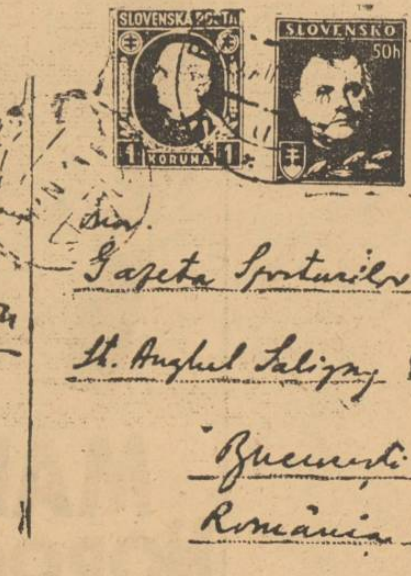 SLOVENSKÁ POŠTA
1 KORUNA 1
SLOVENSKO
50h
Gazeta Sporturilor
St. Anghel Saligny
Bucuresti
România